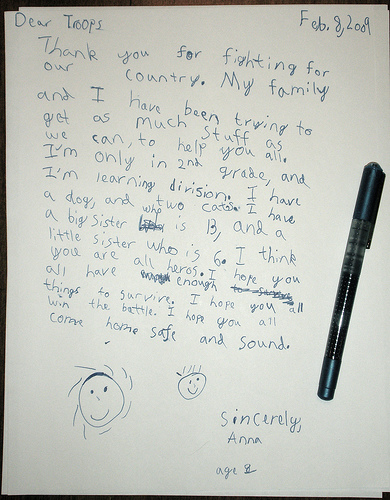 Dear Troops Feb. 8, 2009
Thank you for fighting for
our country. My family
and I have been trying to
get as much stuff as
we can, to help you all.
I'm only in 2nd grade, and
I'm learning division. I have
a dog, and two cats. I have
a big sister who is 13, and a
little sister who is 6. I think
you are all heros. I hope you
all have enough
things to survive. I hope you all
win the battle. I hope you all
come home safe and sound.
Sincerely,
Anna
age 8